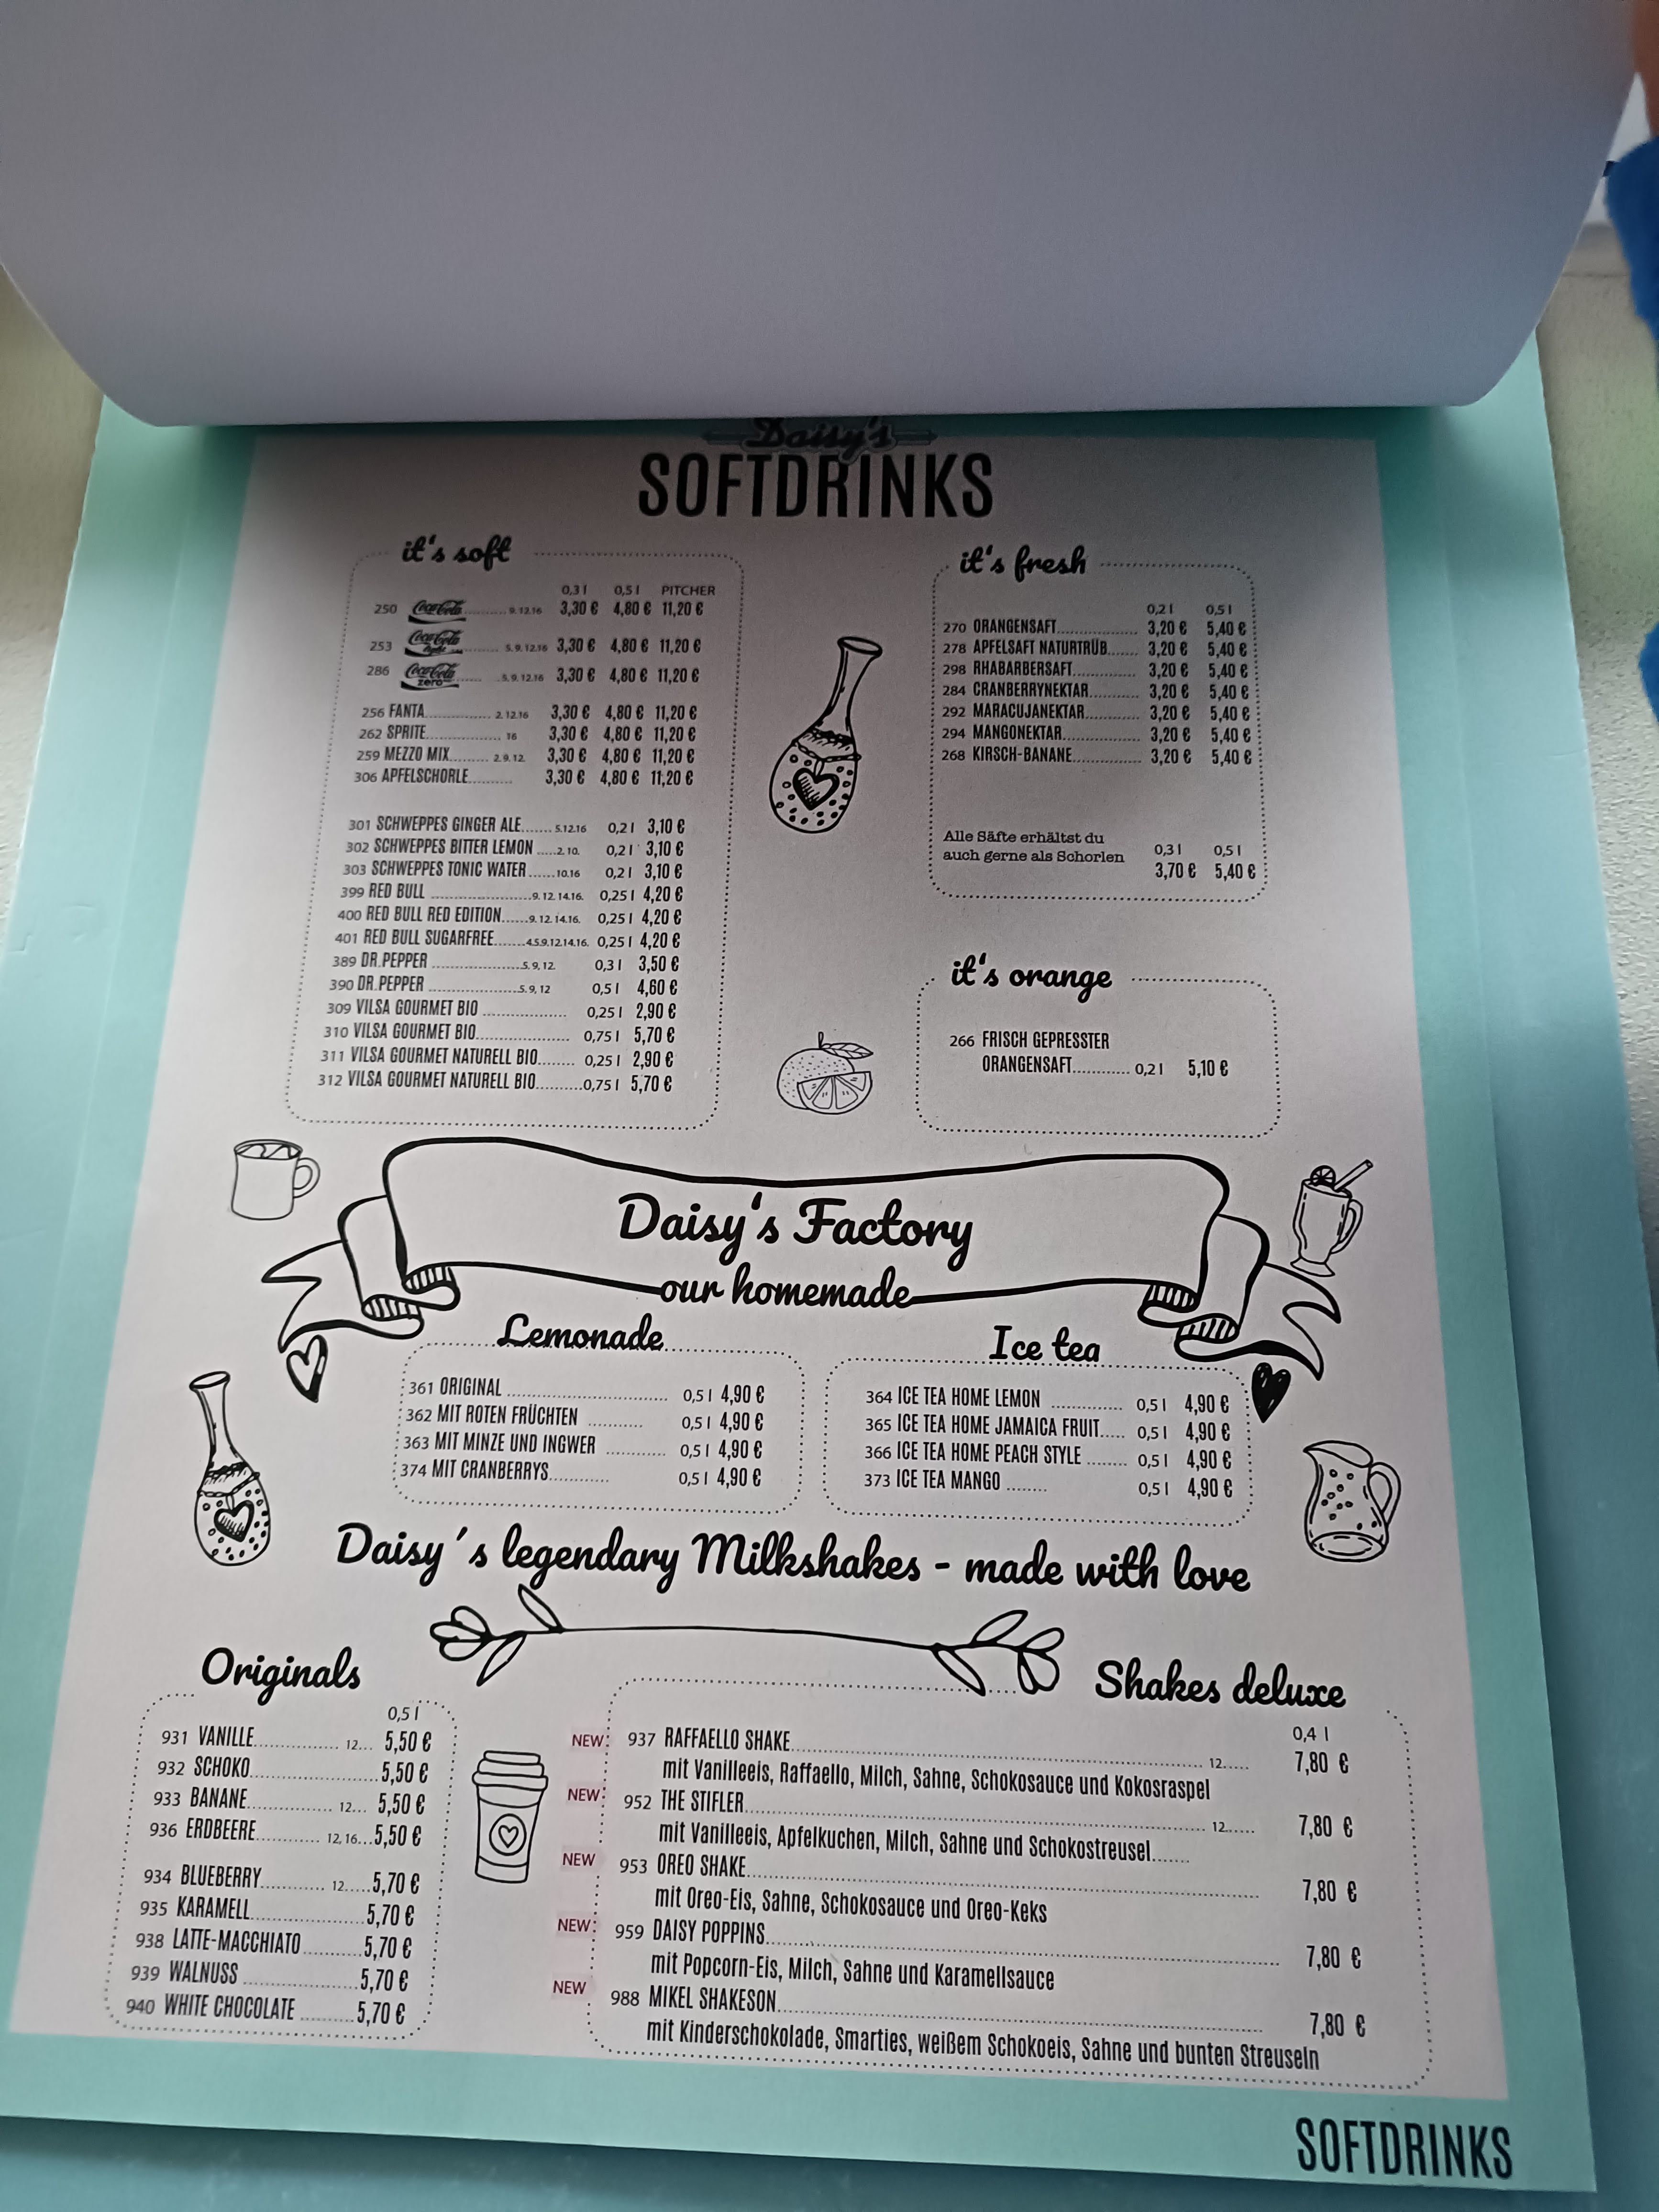 Daisy's
SOFTDRINKS
it's soft
0,3 l 0,5 l PITCHER
250 Coca-Cola .......... 9.12.16 3,30 € 4,80 € 11,20 €
253 Coca-Cola light ........ 5.9.12.16 3,30 € 4,80 € 11,20 €
286 Coca-Cola zero ...... 5.9.12.16 3,30 € 4,80 € 11,20 €
256 FANTA................. 2.12.16 3,30 € 4,80 € 11,20 €
262 SPRITE................... 16 3,30 € 4,80 € 11,20 €
259 MEZZO MIX......... 2.9.12. 3,30 € 4,80 € 11,20 €
306 APFELSCHORLE.......... 3,30 € 4,80 € 11,20 €
301 SCHWEPPES GINGER ALE....... 5.12.16 0,2 l 3,10 €
302 SCHWEPPES BITTER LEMON .....2.10. 0,2 l 3,10 €
303 SCHWEPPES TONIC WATER ......10.16 0,2 l 3,10 €
399 RED BULL .......................9.12.14.16. 0,25 l 4,20 €
400 RED BULL RED EDITION......9.12.14.16. 0,25 l 4,20 €
401 RED BULL SUGARFREE.......4.5.9.12.14.16. 0,25 l 4,20 €
389 DR.PEPPER .....................5.9,12. 0,3 l 3,50 €
390 DR.PEPPER .....................5.9,12 0,5 l 4,60 €
309 VILSA GOURMET BIO ................... 0,25 l 2,90 €
310 VILSA GOURMET BIO.................... 0,75 l 5,70 €
311 VILSA GOURMET NATURELL BIO........ 0,25 l 2,90 €
312 VILSA GOURMET NATURELL BIO..........0,75 l 5,70 €
it's fresh
0,2 l 0,5 l
270 ORANGENSAFT.................. 3,20 € 5,40 €
278 APFELSAFT NATURTRÜB....... 3,20 € 5,40 €
298 RHABARBERSAFT.............. 3,20 € 5,40 €
284 CRANBERRYNEKTAR........... 3,20 € 5,40 €
292 MARACUJANEKTAR............ 3,20 € 5,40 €
294 MANGONEKTAR................. 3,20 € 5,40 €
268 KIRSCH-BANANE............... 3,20 € 5,40 €
Alle Säfte erhältst du
auch gerne als Schorlen
0,3 l 0,5 l
3,70 € 5,40 €
it's orange
266 FRISCH GEPRESSTER
ORANGENSAFT............ 0,2 l 5,10 €
Daisy's Factory
our homemade
Lemonade
361 ORIGINAL ................................. 0,5 l 4,90 €
362 MIT ROTEN FRÜCHTEN ........... 0,5 l 4,90 €
363 MIT MINZE UND INGWER ............ 0,5 l 4,90 €
374 MIT CRANBERRYS............ 0,5 l 4,90 €
Ice tea
364 ICE TEA HOME LEMON .............. 0,5 l 4,90 €
365 ICE TEA HOME JAMAICA FRUIT..... 0,5 l 4,90 €
366 ICE TEA HOME PEACH STYLE ........ 0,5 l 4,90 €
373 ICE TEA MANGO ........ 0,5 l 4,90 €
Daisy´s legendary Milkshakes - made with love
Originals
0,5 l
931 VANILLE................. 12... 5,50 €
932 SCHOKO..........................5,50 €
933 BANANE.................. 12... 5,50 €
936 ERDBEERE.............. 12,16...5,50 €
934 BLUEBERRY............. 12.....5,70 €
935 KARAMELL.......................5,70 €
938 LATTE-MACCHIATO............5,70 €
939 WALNUSS .......................5,70 €
940 WHITE CHOCOLATE ...........5,70 €
Shakes deluxe
0,4 l
NEW 937 RAFFAELLO SHAKE.................... 12..... 7,80 €
mit Vanilleeis, Raffaello, Milch, Sahne, Schokosauce und Kokosraspel
NEW 952 THE STIFLER.................... 12...... 7,80 €
mit Vanilleeis, Apfelkuchen, Milch, Sahne und Schokostreusel.......
NEW 953 OREO SHAKE.................... 7,80 €
mit Oreo-Eis, Sahne, Schokosauce und Oreo-Keks
NEW 959 DAISY POPPINS.................... 7,80 €
mit Popcorn-Eis, Milch, Sahne und Karamellsauce
NEW 988 MIKEL SHAKESON.................... 7,80 €
mit Kinderschokolade, Smarties, weißem Schokoeis, Sahne und bunten Streuseln
SOFTDRINKS